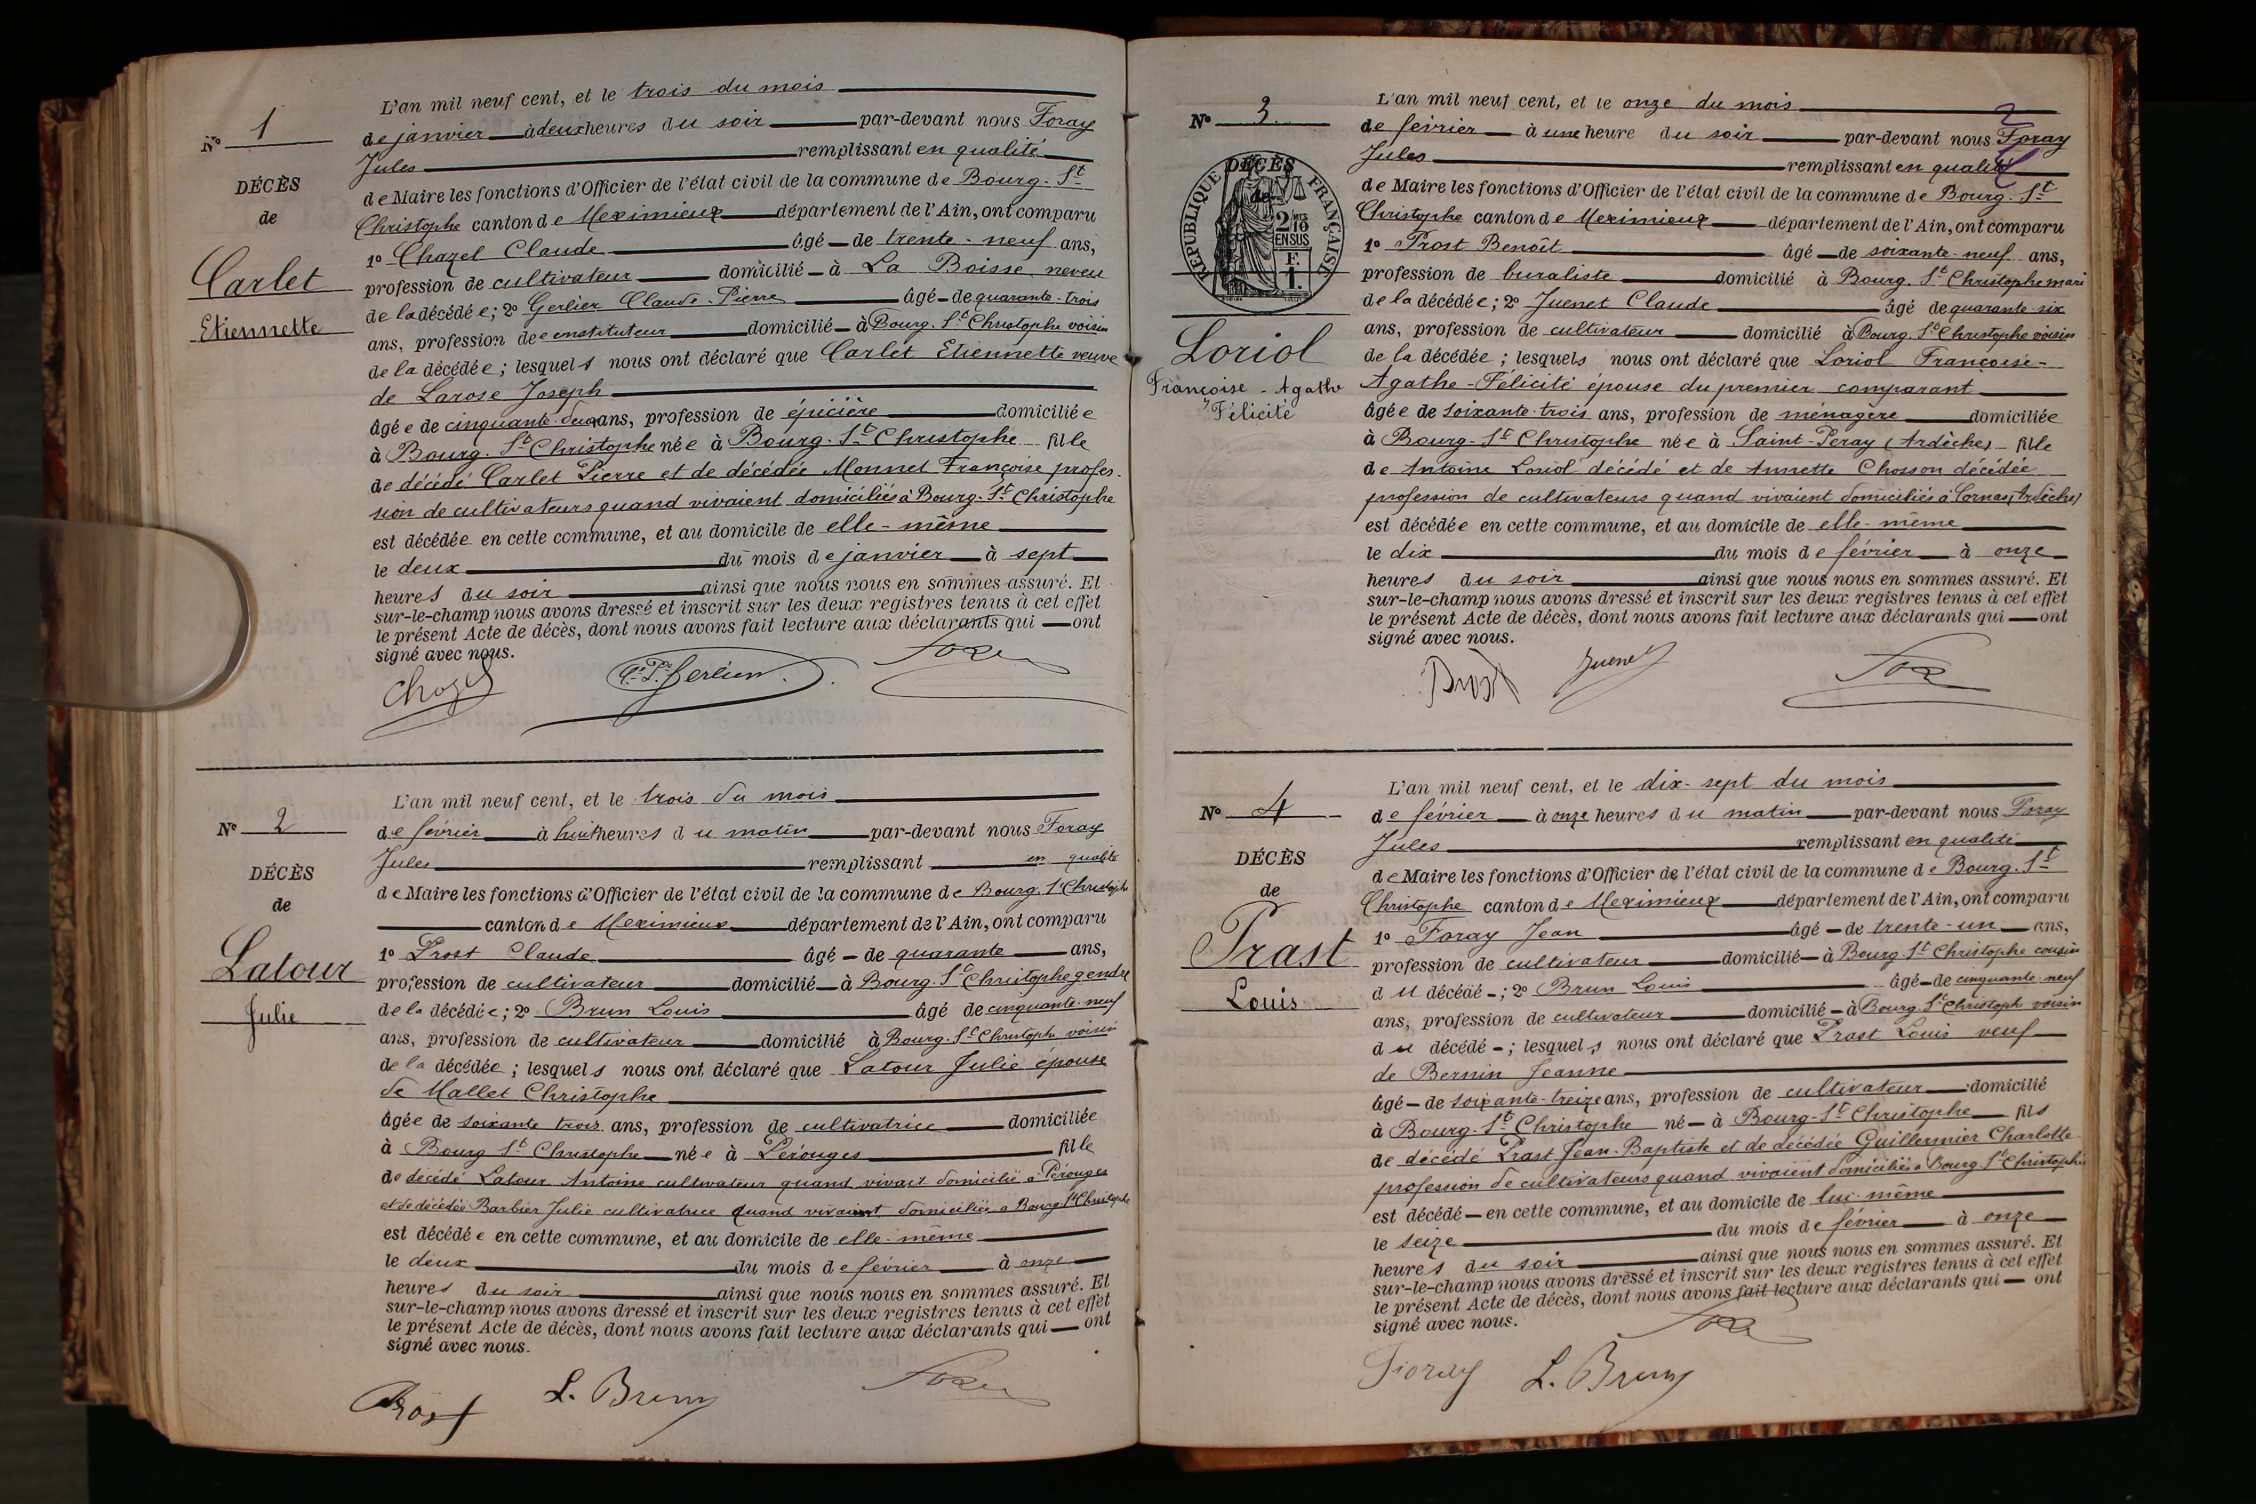 N° 1
DÉCÈS
de
Carlet
Etiennette
L'an mil neuf cent, et le trois du mois
de janvier à deux heures du soir par-devant nous Foray
Jules remplissant en qualité
de Maire les fonctions d'Officier de l'état civil de la commune de Bourg-St
Christophe canton de Meximieux département de l'Ain, ont comparu
1° Chazel Claude âgé de trente-neuf ans,
profession de cultivateur domicilié à La Boisse neveu
de la décédée; 2° Gerlier Claude-Pierre âgé de quarante-trois
ans, profession de instituteur domicilié à Bourg-St Christophe voisin
de la décédée; lesquels nous ont déclaré que Carlet Etiennette veuve
de Larose Joseph
âgée de cinquante-deux ans, profession de épicière domiciliée
à Bourg-St Christophe née à Bourg-St Christophe fille
de décédé Carlet Pierre et de décédée Monnet Françoise profes-
sion de cultivateurs quand vivaient domiciliés à Bourg-St Christophe
est décédée en cette commune, et au domicile de elle-même
le deux du mois de janvier à sept
heures du soir ainsi que nous nous en sommes assuré. Et
sur-le-champ nous avons dressé et inscrit sur les deux registres tenus à cet effet
le présent Acte de décès, dont nous avons fait lecture aux déclarants qui ont
signé avec nous.
Chazel C.P. Gerlier Foray
N° 2
DÉCÈS
de
Latour
Julie
L'an mil neuf cent, et le trois du mois
de février à huit heures du matin par-devant nous Foray
Jules remplissant en qualité
de Maire les fonctions d'Officier de l'état civil de la commune de Bourg-St Christophe
canton de Meximieux département de l'Ain, ont comparu
1° Prost Claude âgé de quarante ans,
profession de cultivateur domicilié à Bourg-St Christophe gendre
de la décédée; 2° Brun Louis âgé de cinquante-neuf
ans, profession de cultivateur domicilié à Bourg-St Christoph voisin
de la décédée; lesquels nous ont déclaré que Latour Julie épouse
de Mallet Christophe
âgée de soixante trois ans, profession de cultivatrice domiciliée
à Bourg St Christophe née à Pérouges fille
de décédé Latour Antoine cultivateur quand vivait domicilié à Pérouges
et de décédée Barbier Julie cultivatrice quand vivaient domiciliée a Bourg St Christophe
est décédée en cette commune, et au domicile de elle-même
le deux du mois de février à onze
heures du soir ainsi que nous nous en sommes assuré. Et
sur-le-champ nous avons dressé et inscrit sur les deux registres tenus à cet effet
le présent Acte de décès, dont nous avons fait lecture aux déclarants qui ont
signé avec nous.
Prost L. Brun Foray
N° 3
DÉCÈS
de
RÉPUBLIQUE FRANÇAISE
2/10
EN SUS
F.
1.
Loriol
Françoise-Agathe
Félicité
L'an mil neuf cent, et le onze du mois
de février à une heure du soir par-devant nous Foray
Jules remplissant en qualité
de Maire les fonctions d'Officier de l'état civil de la commune de Bourg-St
Christophe canton de Meximieux département de l'Ain, ont comparu
1° Prost Benoît âgé de soixante-neuf ans,
profession de buraliste domicilié à Bourg-St Christophe mari
de la décédée; 2° Juenet Claude âgé de quarante-six
ans, profession de cultivateur domicilié à Bourg-St Christophe voisin
de la décédée; lesquels nous ont déclaré que Loriol Françoise-
Agathe-Félicité épouse du premier comparant
âgée de soixante-trois ans, profession de ménagère domiciliée
à Bourg-St Christophe née à Saint-Peray (Ardèche) fille
de Antoine Loriol décédé et de Annette Chosson décédée
profession de cultivateurs quand vivaient domiciliés à Cornas (Ardèche)
est décédée en cette commune, et au domicile de elle-même
le dix du mois de février à onze
heures du soir ainsi que nous nous en sommes assuré. Et
sur-le-champ nous avons dressé et inscrit sur les deux registres tenus à cet effet
le présent Acte de décès, dont nous avons fait lecture aux déclarants qui ont
signé avec nous.
Prost Juenet Foray
N° 4
DÉCÈS
de
Prast
Louis
L'an mil neuf cent, et le dix-sept du mois
de février à onze heures du matin par-devant nous Foray
Jules remplissant en qualité
de Maire les fonctions d'Officier de l'état civil de la commune de Bourg-St
Christophe canton de Meximieux département de l'Ain, ont comparu
1° Foray Jean âgé de trente-un ans,
profession de cultivateur domicilié à Bourg-St Christophe cousin
du décédé; 2° Brun Louis âgé de cinquante-neuf
ans, profession de cultivateur domicilié à Bourg-St Christoph voisin
du décédé; lesquels nous ont déclaré que Prast Louis veuf
de Bernin Jeanne
âgé de soixante-treize ans, profession de cultivateur domicilié
à Bourg-St Christophe né à Bourg-St Christophe fils
de décédé Prast Jean-Baptiste et de décédée Guillermier Charlotte
profession de cultivateurs quand vivaient domiciliés à Bourg St Christophe
est décédé en cette commune, et au domicile de lui-même
le seize du mois de février à onze
heures du soir ainsi que nous nous en sommes assuré. Et
sur-le-champ nous avons dressé et inscrit sur les deux registres tenus à cet effet
le présent Acte de décès, dont nous avons fait lecture aux déclarants qui ont
signé avec nous.
Foray L. Brun Foray